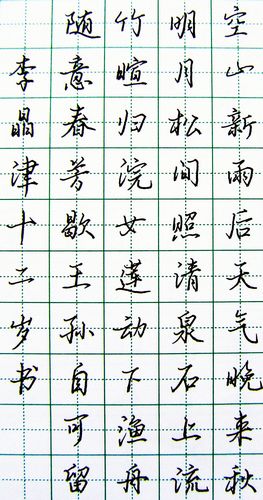 空山新雨后天气晚来秋
明月松间照清泉石上流
竹暄归浣女莲动下渔舟
随意春芳歇王孙自可留
李晶津十二岁书